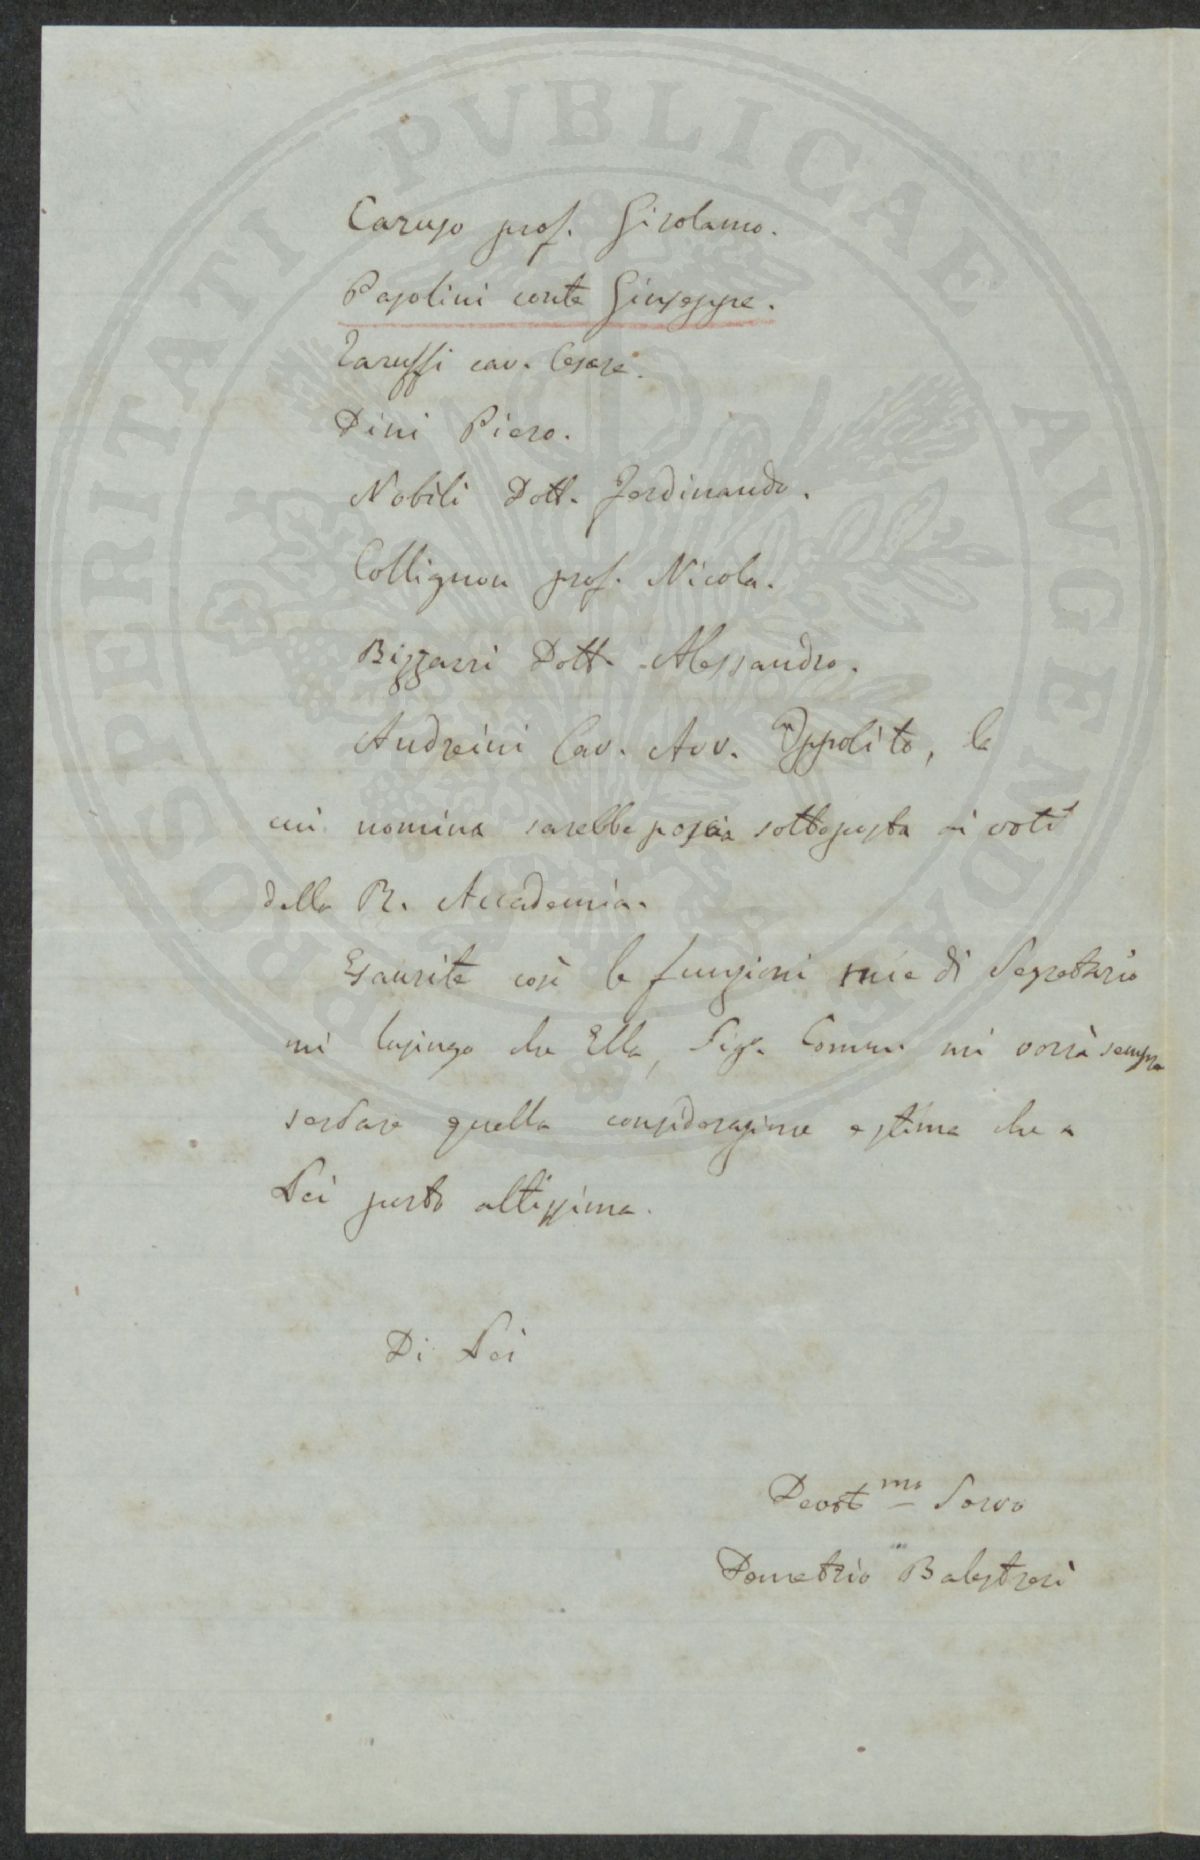 PROSPERITATI PVBLICAE AVGENDAE
Caruso prof. Girolamo.
Pasolini conte Giuseppe.
Taruffi cav. Cesare.
Dini Piero.
Nobili Dott. Ferdinando.
Collignon prof. Nicola.
Bizzarri Dott. Alessandro.
Andreini Cav. Avv. Ippolito, la
cui nomina sarebbe poscia sottoposta ai voti
della R. Accademia.
Esaurite così le funzioni mie di Segretario
mi lusingo che Ella, Sigr. Comm. mi vorrà sempre
serbare quella considerazione e stima che a
Lei porto altissima.
Di Lei
Devotmo Servo
Demetrio Balestreri